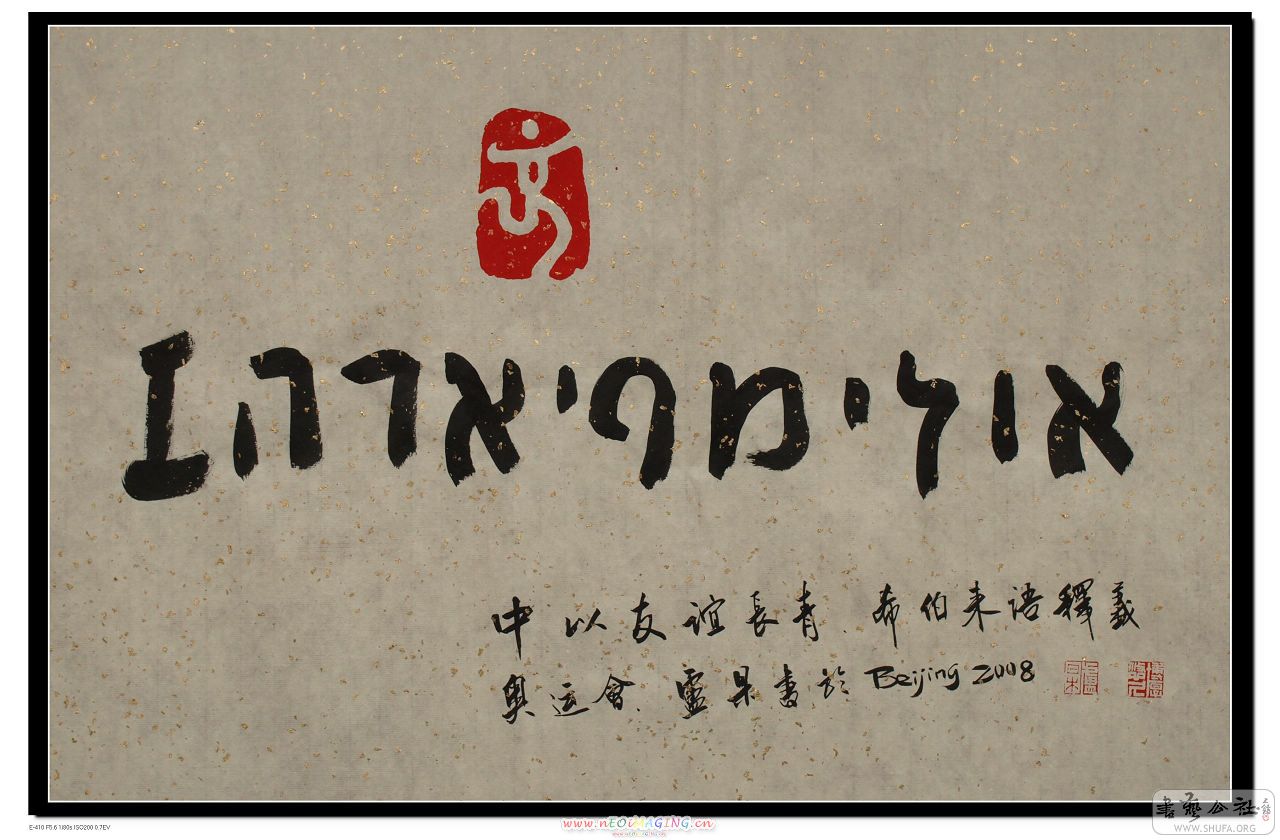 אולימפיאדה
中以友谊長青 希伯来语釋義
奥运會 果書於 Beijing 2008
E-410 F5.6 1/80s ISO200 0.7EV
www.nEOiMAGING.cn
書藝公社
WWW.SHUFA.ORG